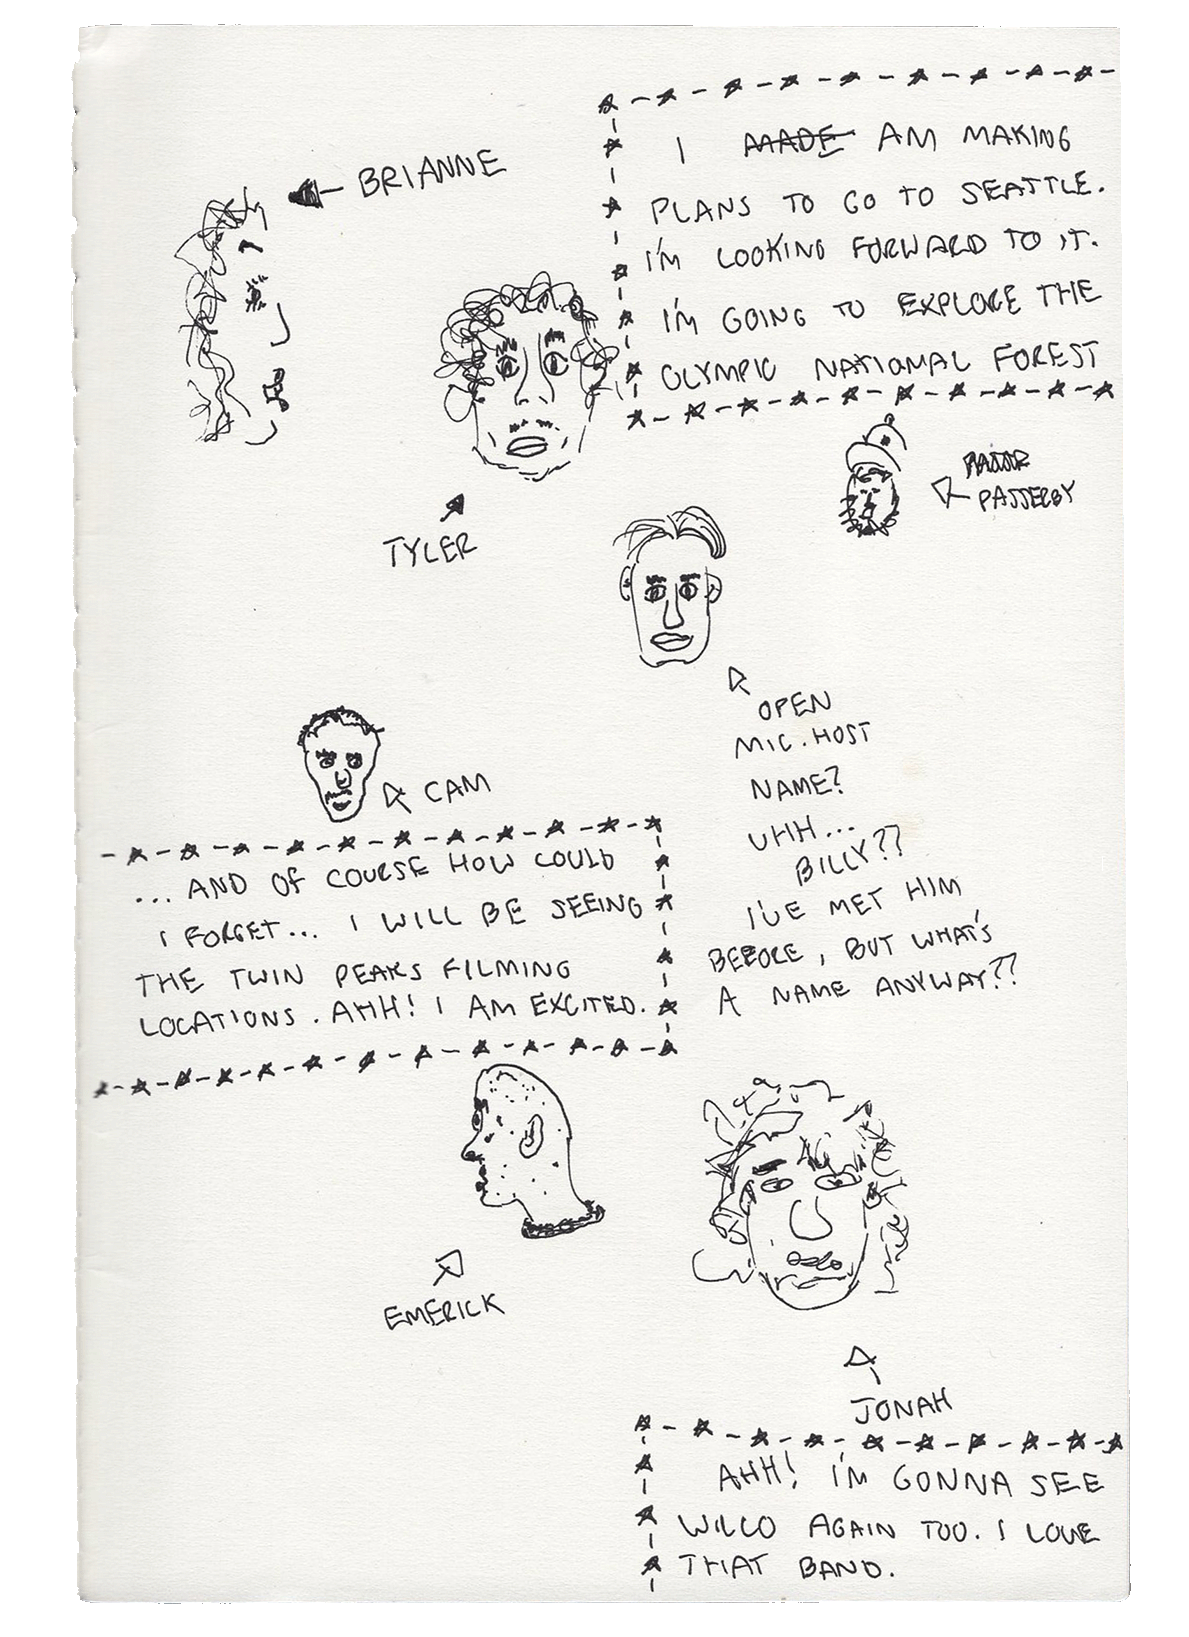 BRIANNE
I MADE AM MAKING
PLANS TO GO TO SEATTLE.
I'M LOOKING FORWARD TO IT.
I'M GOING TO EXPLORE THE
OLYMPIC NATIONAL FOREST
TYLER
PASSERBY
OPEN
MIC. HOST
NAME?
UHH...
BILLY??
I'VE MET HIM
BEFORE, BUT WHAT'S
A NAME ANYWAY??
CAM
... AND OF COURSE HOW COULD
I FORGET... I WILL BE SEEING
THE TWIN PEAKS FILMING
LOCATIONS. AHH! I AM EXCITED.
EMERICK
JONAH
AHH! I'M GONNA SEE
WILCO AGAIN TOO. I LOVE
THAT BAND.